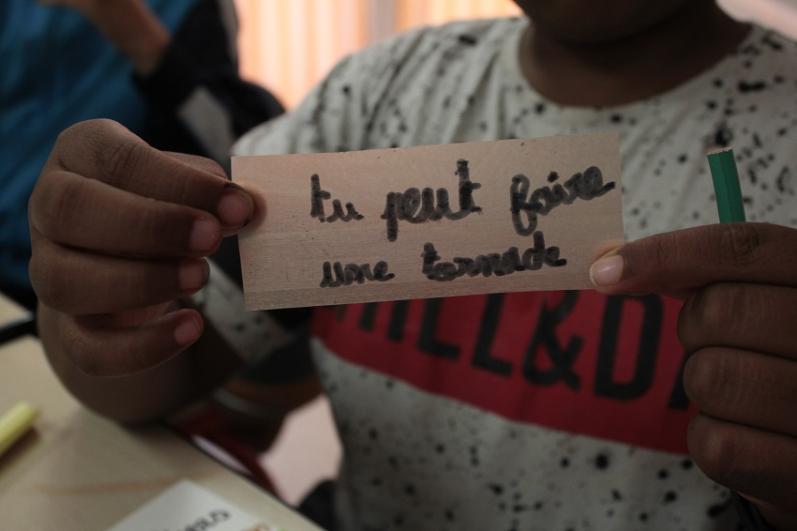 tu peut faire
une tornade
HILL&D